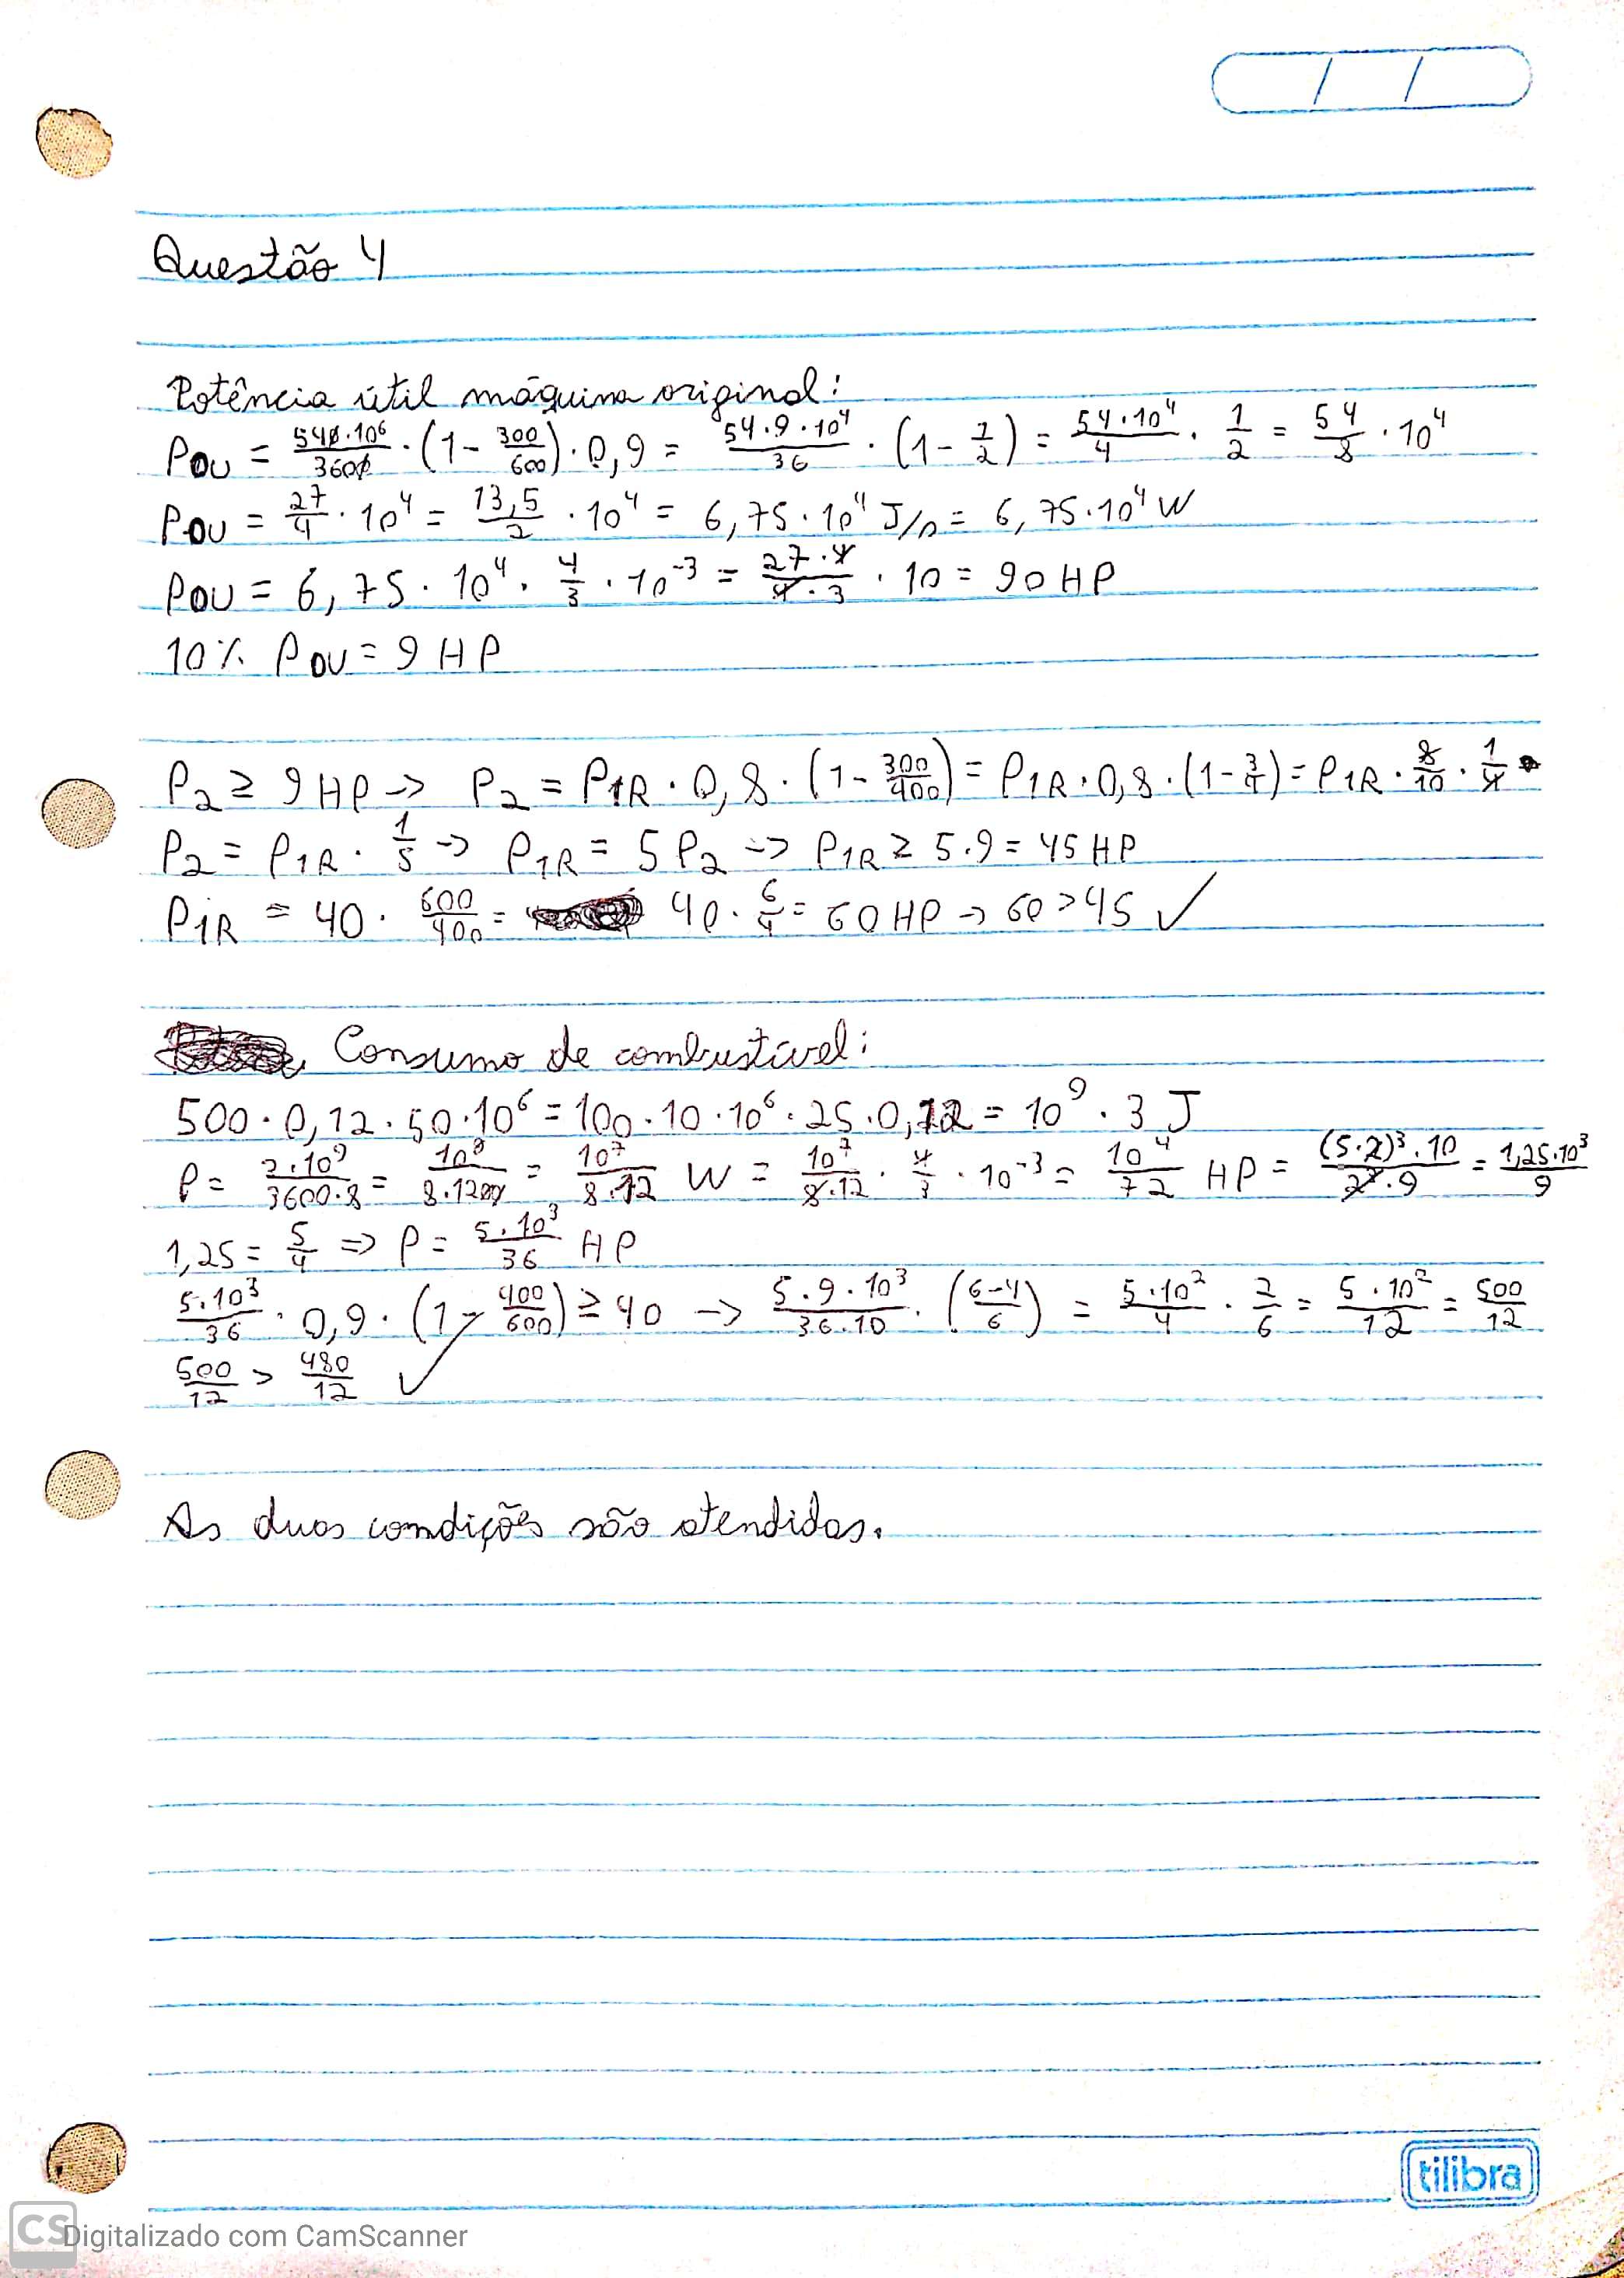 Questão 4
Potência útil máquina original:
POU = 540.10⁶/3600 . (1 - 300/600) . 0,9 = 54.9.10⁴/36 . (1 - 1/2) = 54.10⁴/4 . 1/2 = 54/8 . 10⁴
POU = 27/4 . 10⁴ = 13,5/2 . 10⁴ = 6,75.10⁴ J/s = 6,75.10⁴ W
POU = 6,75 . 10⁴ . 4/3 . 10⁻³ = 27.4/4.3 . 10 = 90 HP
10% POU = 9 HP
P2 ≥ 9 HP -> P2 = P1R . 0,8 . (1 - 300/400) = P1R . 0,8 . (1 - 3/4) = P1R . 8/10 . 1/4
P2 = P1R . 1/5 -> P1R = 5 P2 -> P1R ≥ 5.9 = 45 HP
P1R = 40 . 600/400 = 40 . 6/4 = 60 HP -> 60 > 45 ✓
Consumo de combustível:
500 . 0,12 . 50.10⁶ = 100 . 10 . 10⁶ . 25 . 0,12 = 10⁹ . 3 J
P = 3.10⁹/3600.8 = 10⁹/8.1200 = 10⁷/8.12 W = 10⁷/8.12 . 4/3 . 10⁻³ = 10⁴/72 HP = (5.2)³.10/2³.9 = 1,25.10³/9
1,25 = 5/4 => P = 5.10³/36 HP
5.10³/36 . 0,9 . (1 - 400/600) ≥ 40 -> 5.9.10³/36.10 . (6-4/6) = 5.10²/4 . 2/6 = 5.10²/12 = 500/12
500/12 > 480/12 ✓
As duas condições são atendidas.
tilibra
CS Digitalizado com CamScanner